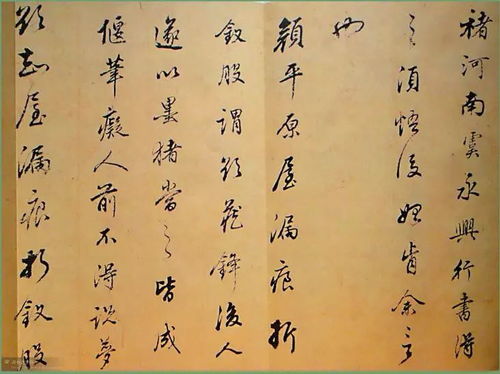 褚河南虞永興行書得
之須悟後始肯余言
也
顏平原屋漏痕折
釵股謂欲藏鋒後人
遂以墨猪當之皆成
偃筆癡人前不得說夢
欲知屋漏痕折釵股